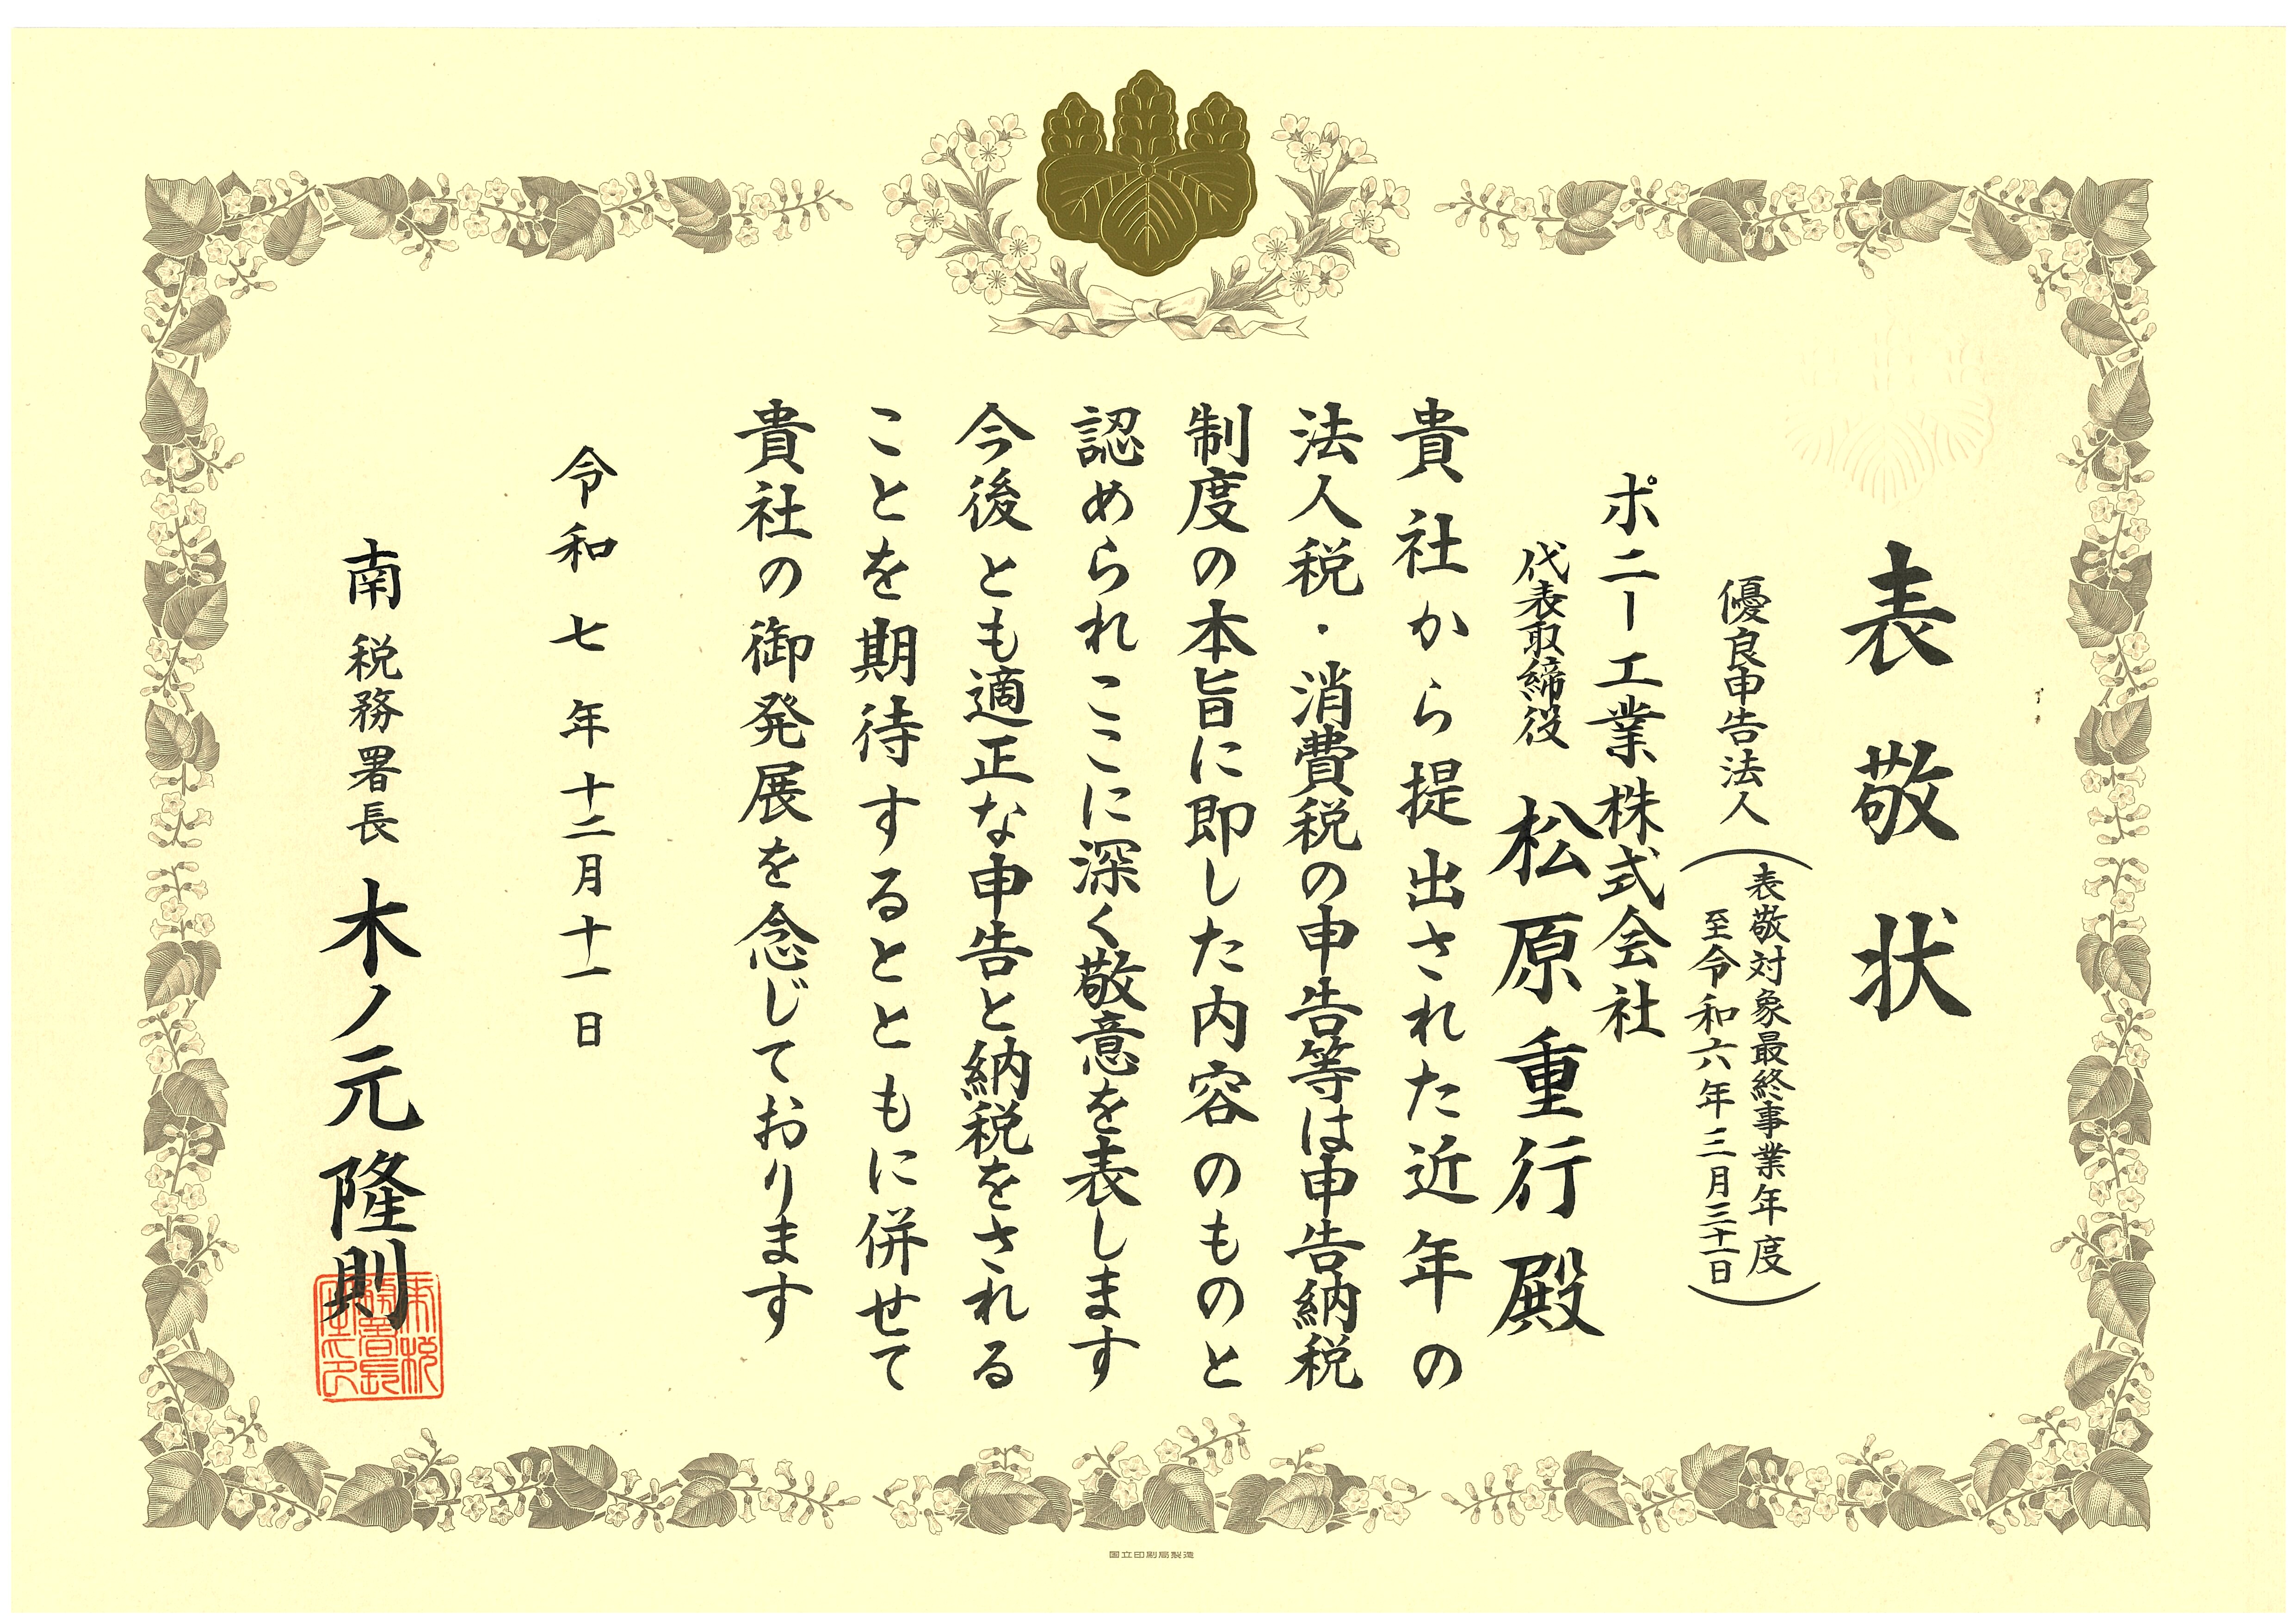 表敬状
優良申告法人
(表敬対象最終事業年度
至令和六年三月三十一日)
ポニー工業株式会社
代表取締役 松原重行殿
貴社から提出された近年の
法人税・消費税の申告等は申告納税
制度の本旨に即した内容のものと
認められここに深く敬意を表します
今後とも適正な申告と納税をされる
ことを期待するとともに併せて
貴社の御発展を念じております
令和七年十二月十一日
南税務署長 木ノ元隆則
国立印刷局製造